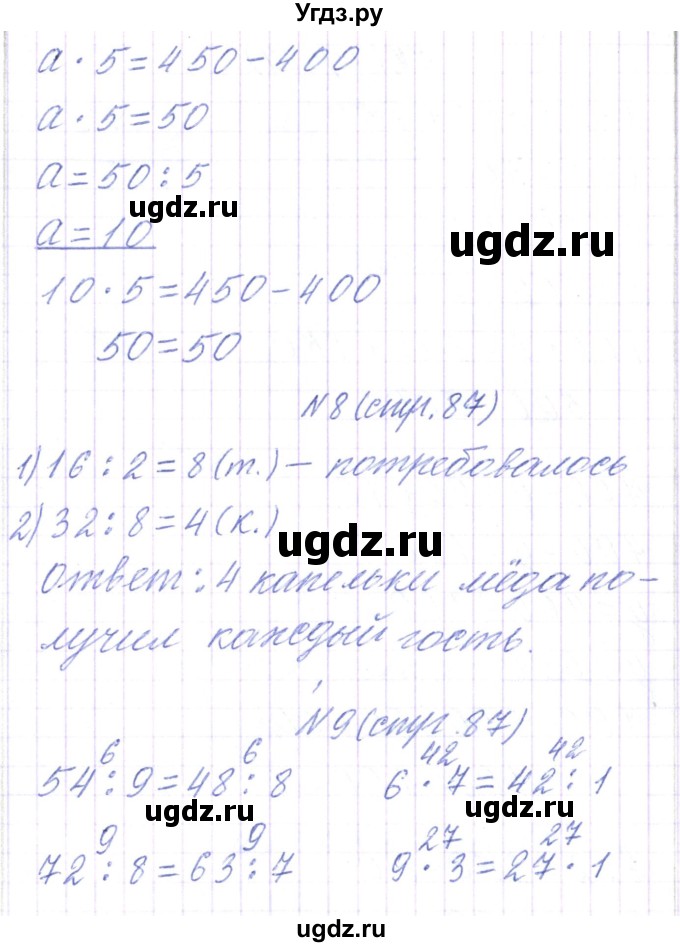 Угдз.ру
а · 5 = 450 - 400
а · 5 = 50
а = 50 : 5
ugdz.ru
а = 10
ugdz.ru
10 · 5 = 450 - 400
50 = 50
№8 (стр. 87)
1) 16 : 2 = 8 (т.) - потребовалось
2) 32 : 8 = 4 (к.)
ugdz.ru
Ответ: 4 капельки мёда по-
лучил каждый гость.
№9 (стр. 87)
6 6 42 42
54 : 9 = 48 : 8 6 · 7 = 42 : 1
ugdz.ru ugdz.ru
9 9 27 27
72 : 8 = 63 : 7 9 · 3 = 27 · 1
ugdz.ru